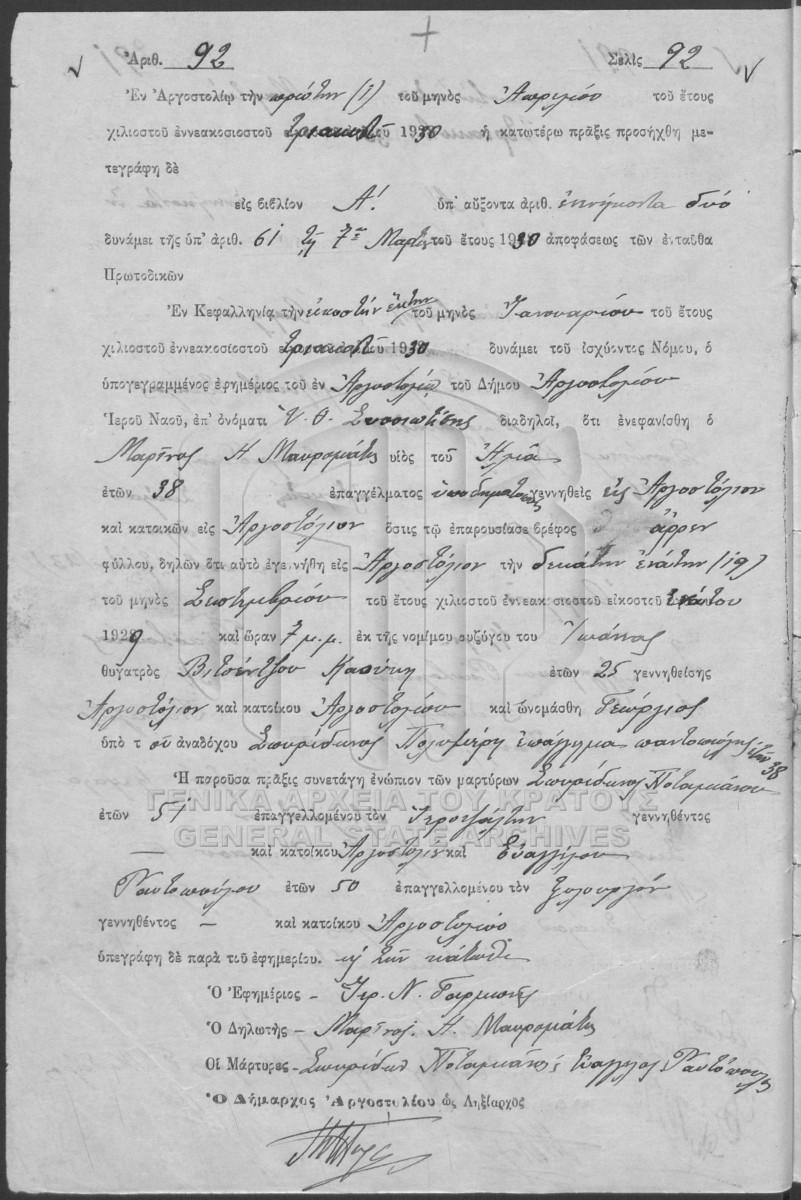 Ἀριθ. 92 Σελὶς 92
Ἐν Ἀργοστολίῳ τὴν πρώτην (1) τοῦ μηνὸς Ἀπριλίου τοῦ ἔτους
χιλιοστοῦ ἐννεακοσιοστοῦ τριακοστοῦ 1930 ἡ κατωτέρω πρᾶξις προσήχθη με-
τεγράφη δὲ
εἰς βιβλίον Α! ὑπ' αὔξοντα ἀριθ. ἐννήκοντα δύο
δυνάμει τῆς ὑπ' ἀριθ. 61 τῇ 7ῃ Μαρτ. τοῦ ἔτους 1930 ἀποφάσεως τῶν ἐνταῦθα
Πρωτοδικῶν
Ἐν Κεφαλληνίᾳ τὴν εἰκοστὴν ἕκτην τοῦ μηνὸς Ἰανουαρίου τοῦ ἔτους
χιλιοστοῦ ἐννεακοσιοστοῦ τριακοστοῦ 1930 δυνάμει τοῦ ἰσχύοντος Νόμου, ὁ
ὑπογεγραμμένος ἐφημέριος τοῦ ἐν Ἀργοστολίῳ τοῦ Δήμου Ἀργοστολίου
Ἱεροῦ Ναοῦ, ἐπ' ὀνόματι Υ. Θ. Σισσιωτίσης διαδηλοῖ, ὅτι ἐνεφανίσθη ὁ
Μαρῖνος Η Μαυρομάτης υἱὸς τοῦ Ἠλία
ἐτῶν 38 ἐπαγγέλματος ὑποδηματοποιὸς γεννηθεὶς εἰς Ἀργοστόλιον
καὶ κατοικῶν εἰς Ἀργοστόλιον ὅστις τῷ ἐπαρουσίασε βρέφος ἄρρεν
φύλλου, δηλῶν ὅτι αὐτὸ ἐγεννήθη εἰς Ἀργοστόλιον τὴν δεκάτην ἐνάτην (19)
τοῦ μηνὸς Σεπτεμβρίου τοῦ ἔτους χιλιοστοῦ ἐννεακ σιοστοῦ εἰκοστοῦ ἐνάτου
1929 καὶ ὥραν 7 μ.μ. ἐκ τῆς νομίμου συζύγου του Ἰωάννας
θυγατρὸς Βιτσέντζου Κασίνη ἐτῶν 25 γεννηθείσης
Ἀργοστόλιον καὶ κατοίκου Ἀργοστολίου καὶ ὠνομάσθη Γεώργιος
ὑπὸ τ οῦ ἀναδόχου Σπυρίδωνος Πολυμέρη ἐπάγγελμα παντοπώλης ἐτῶν 38
Ἡ παροῦσα πρᾶξις συνετάγη ἐνώπιον τῶν μαρτύρων Σπυρίδωνος Ποταμιάνου
ΓΕΝΙΚΑ ΑΡΧΕΙΑ ΤΟΥ ΚΡΑΤΟΥΣ
ἐτῶν 51 ἐπαγγελλομένου τὸν Ἱεροψάλτην γεννηθέντος
GENERAL STATE ARCHIVES
— καὶ κατοίκου Ἀργοστόλιον καὶ Εὐαγγέλου
Ραυτοπούλου ἐτῶν 50 ἐπαγγελλομένου τὸν ξυλουργὸν
γεννηθέντος — καὶ κατοίκου Ἀργοστολίου
ὑπεγράφη δὲ παρὰ τοῦ ἐφημερίου. καὶ τῶν κάτωθι
Ὁ Ἐφημέριος - Ἱερ. Ν.
Ὁ Δηλωτὴς - Μαρῖνος. Η. Μαυρομάτης
Οἱ Μάρτυρες - Σπυρίδων Ποταμιάνος, Εὐάγγελος Ραυτόπουλος
Ὁ Δήμαρχος Ἀργοστολίου ὡς Ληξίαρχος